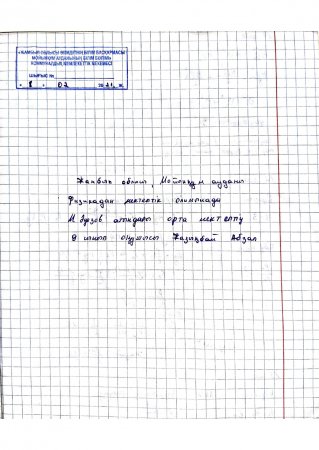 «ЖАМБЫЛ ОБЛЫСЫ ӘКІМДІГІНІҢ БІЛІМ БАСҚАРМАСЫ
МОЙЫНҚҰМ АУДАНЫНЫҢ БІЛІМ БӨЛІМІ»
КОММУНАЛДЫҚ МЕМЛЕКЕТТІК МЕКЕМЕСІ
ШЫҒЫС №
« 8 » 02 2021 ж.
Жамбыл облысы, Мойынқұм ауданы
Физикадан мектептік олимпиада
М Әуезов атындағы орта мектептің
9 сынып оқушысы Жазықбай Абзал